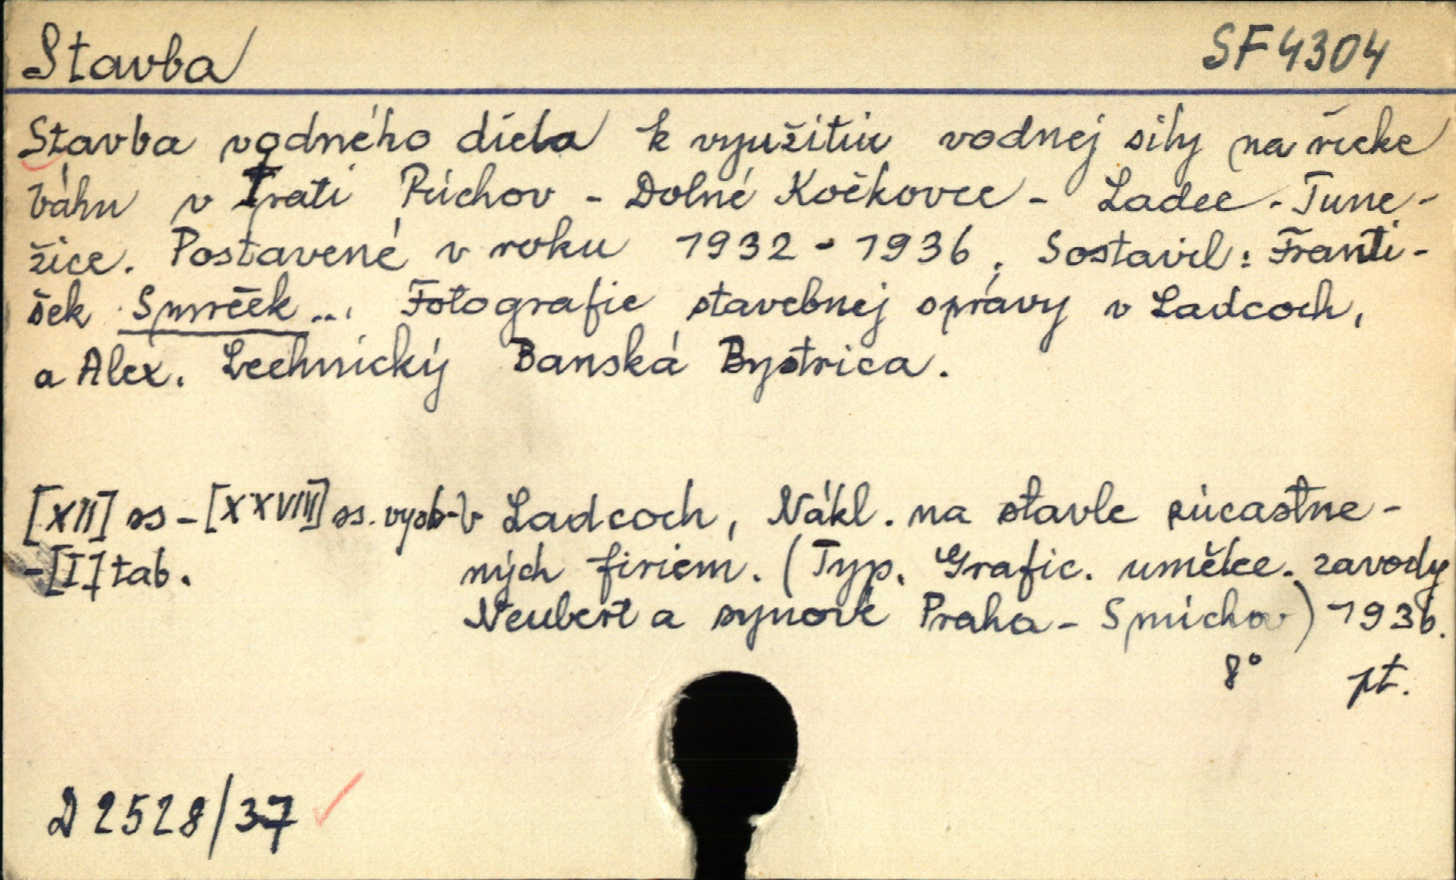 Stavba
SF 4304
Stavba vodného diela k využitiu vodnej sily na rieke
Váhu v trati Púchov - Dolné Kočkovce - Ladce - Tune-
žice. Postavené v roku 1932 - 1936. Sostavil: Franti-
šek Smrček ... Fotografie stavebnej správy v Ladcoch,
a Alex. Lechnický Banská Bystrica.
[XII] ss - [XXVIII] ss. vyob- V Ladcoch, Nákl. na stavbe súcastne-
- [I] tab. ných firiem. (Typ. Grafic. umělce. zavody
Neubert a synové Praha - Smíchov) 1936.
8° pt.
D 2528/37